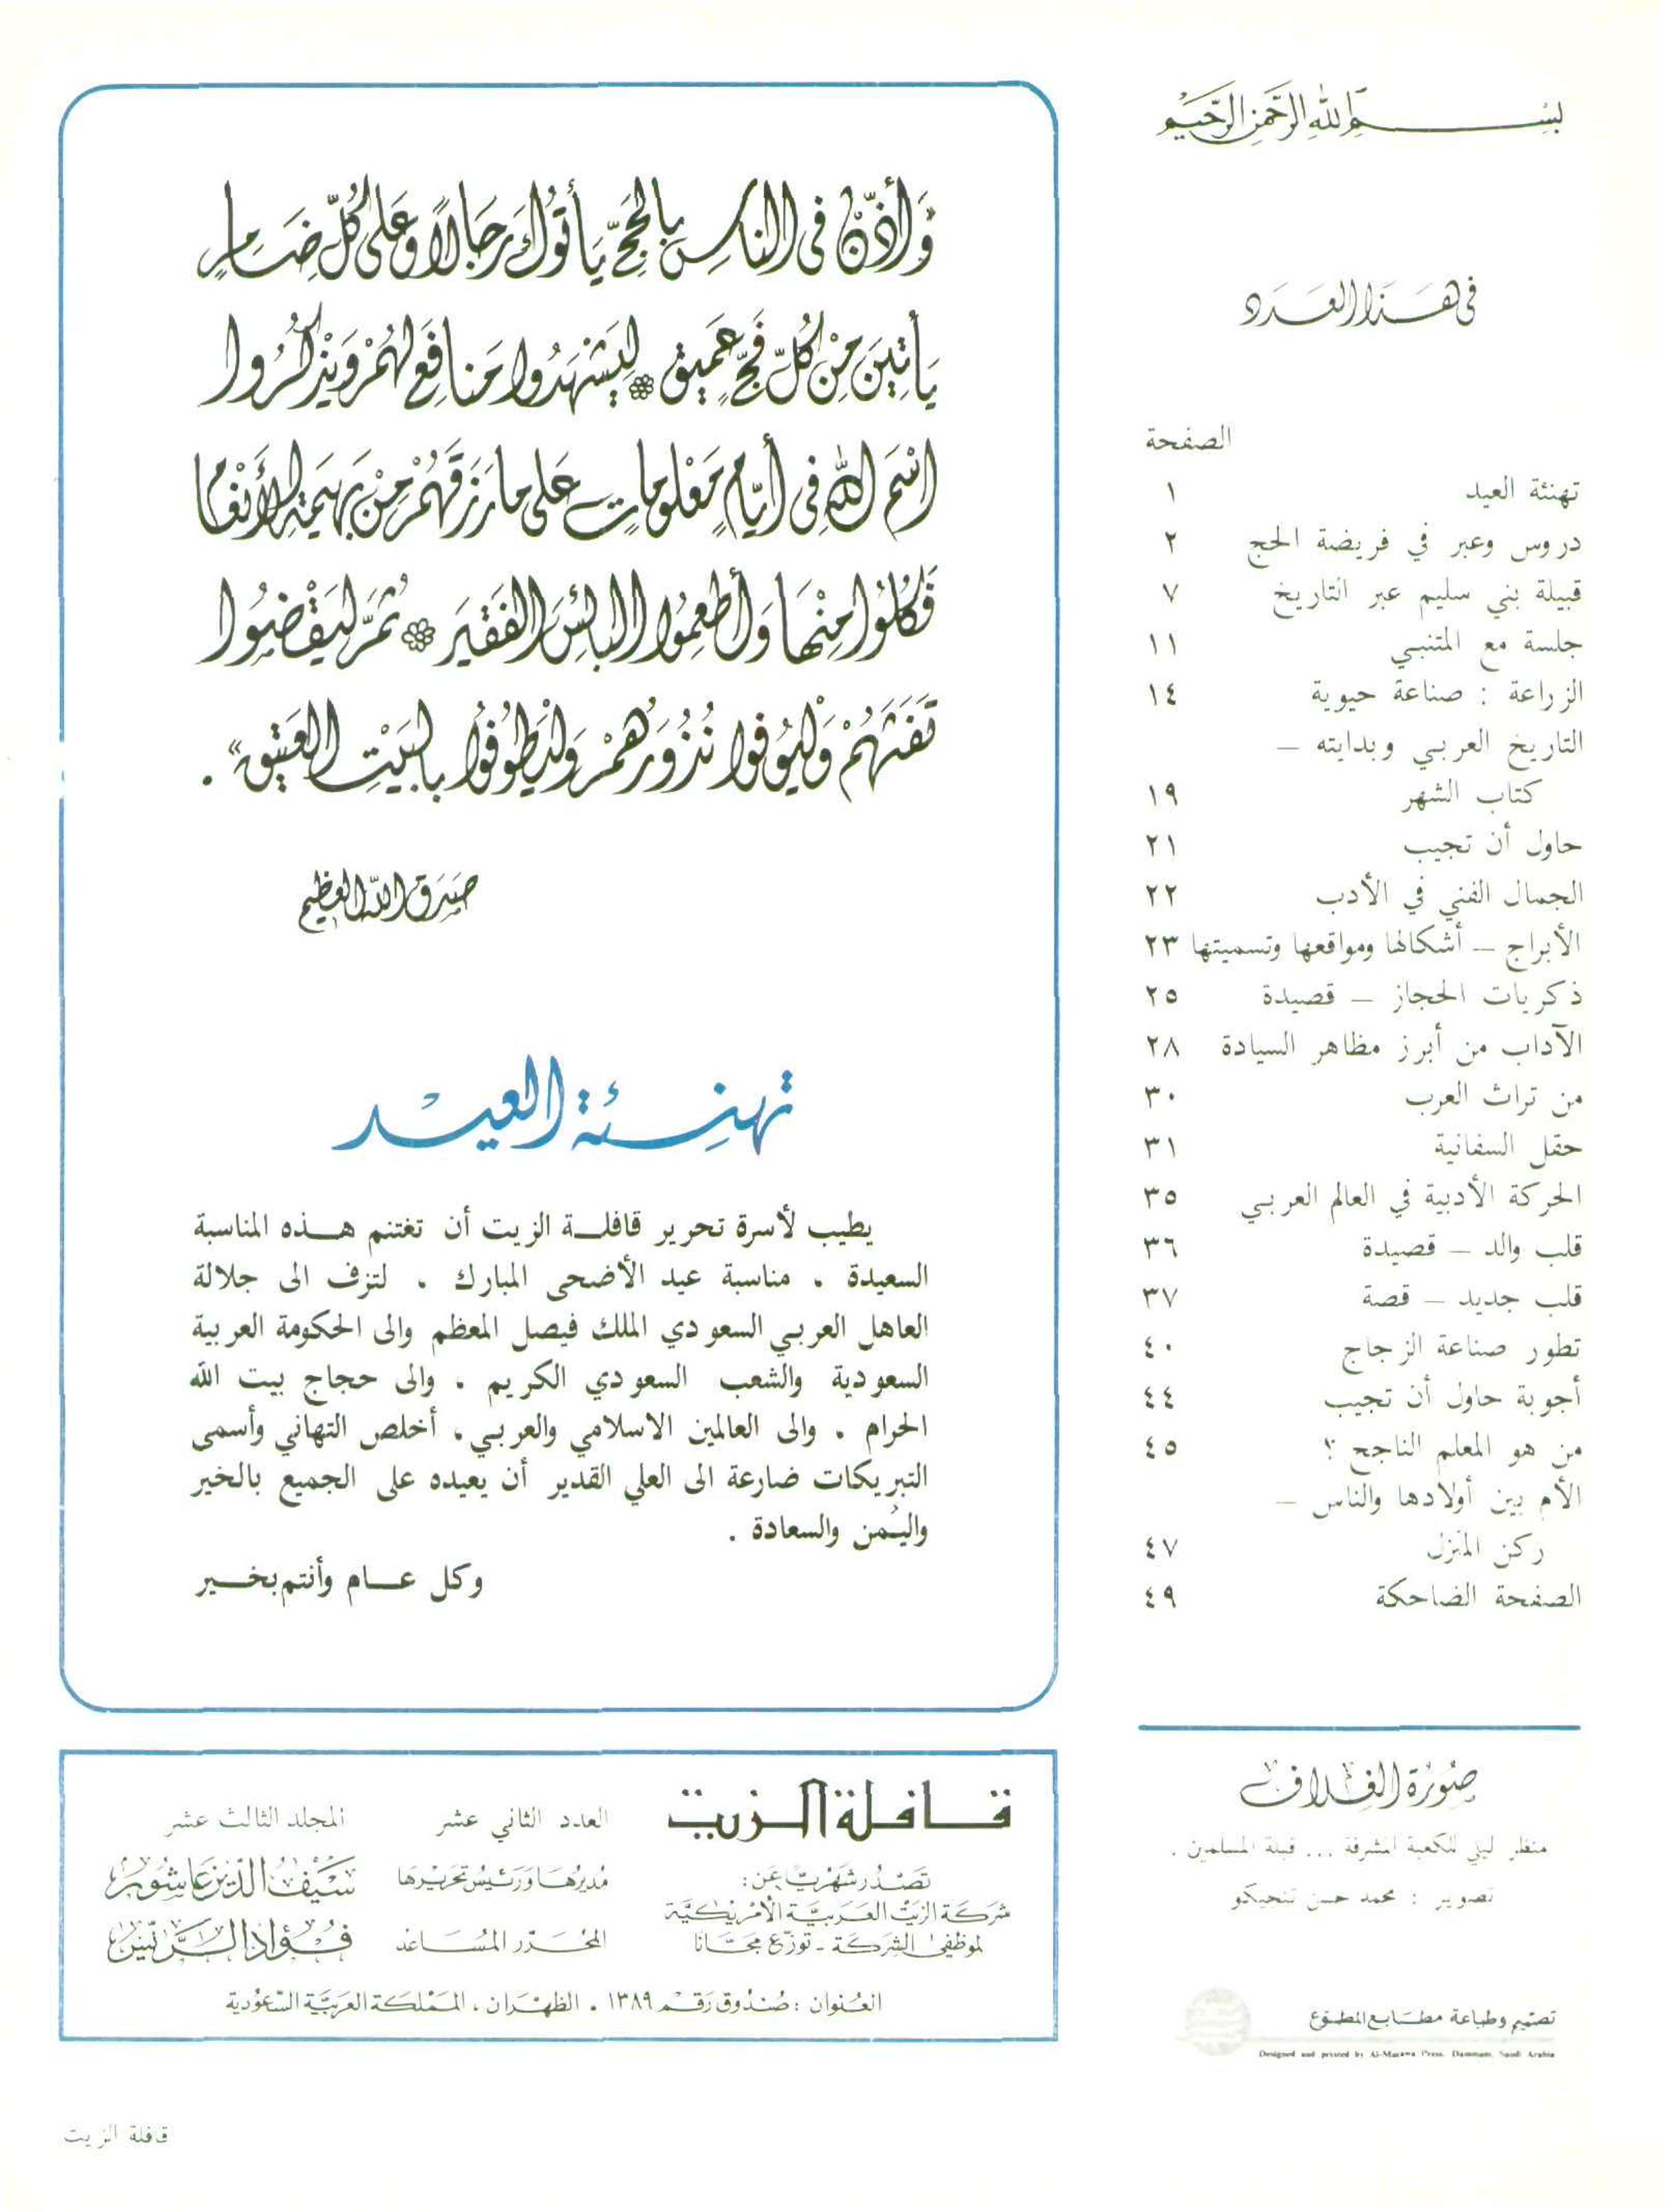 بسم الله الرحمن الرحيم
في هذا العدد
الصفحة
تهنئة العيد ١
دروس وعبر في فريضة الحج ٢
قبيلة بني سليم عبر التاريخ ٧
جلسة مع المتنبي ١١
الزراعة : صناعة حيوية ١٤
التاريخ العربي وبدايته –
كتاب الشهر ١٩
حاول أن تجيب ٢١
الجمال الفني في الأدب ٢٢
الأبراج – أشكالها ومواقعها وتسميتها ٢٣
ذكريات الحجاز – قصيدة ٢٥
الآداب من أبرز مظاهر السيادة ٢٨
من تراث العرب ٣٠
حقل السفانية ٣١
الحركة الأدبية في العالم العربي ٣٥
قلب والد – قصيدة ٣٦
قلب جديد – قصة ٣٧
تطور صناعة الزجاج ٤٠
أجوبة حاول أن تجيب ٤٤
من هو المعلم الناجح ؟ ٤٥
الأم بين أولادها والناس –
ركن المنزل ٤٧
الصفحة الضاحكة ٤٩
صورة الغلاف
منظر ليلي للكعبة المشرفة ... قبلة المسلمين .
تصوير : محمد حسن تنجيكو
تصميم وطباعة مطابع المطوع
Designed and printed by Al-Mutawa Press, Dammam, Saudi Arabia
وَأَذِّنْ فِى النَّاسِ بِالحَجِّ يَأتُوكَ رِجَالاً وَعَلى كُلِّ ضَامِرٍ
يَأتِينَ مِنْ كُلِّ فَجٍّ عَمِيق * لِيَشْهَدُوا مَنافِعَ لَهُمْ وَيَذْكُرُوا
اسْمَ اللهِ فِى أَيَّامٍ مَعْلُومَاتٍ عَلى مَا رَزَقَهُمْ مِنْ بَهِيمَةِ الأَنْعَامِ
فَكُلُوا مِنْهَا وَأَطْعِمُوا البَائِسَ الفَقِيرَ * ثُمَّ لْيَقْضُوا
تَفَثَهُمْ وَلْيُوفُوا نُذُورَهُمْ وَلْيَطَّوَّفُوا بِالبَيْتِ العَتِيقِ» .
صدق الله العظيم
تهنئة العيد
يطيب لأسرة تحرير قافلة الزيت أن تغتنم هذه المناسبة
السعيدة ، مناسبة عيد الأضحى المبارك ، لتزف الى جلالة
العاهل العربي السعودي الملك فيصل المعظم والى الحكومة العربية
السعودية والشعب السعودي الكريم ، والى حجاج بيت الله
الحرام ، والى العالمين الاسلامي والعربي ، أخلص التهاني وأسمى
التبريكات ضارعة الى العلي القدير أن يعيده على الجميع بالخير
واليُمن والسعادة .
وكل عام وأنتم بخير
قافلة الزيت
العدد الثاني عشر المجلد الثالث عشر
تصدر شهريًا عن:
شركة الزيت العربية الأمريكية
لموظفي الشركة - توزع مجانا
مديرها ورئيس تحريرها سيف الدين عاشور
المحرر المساعد فؤاد الريس
العنوان : صندوق رقم ١٣٨٩ ، الظهران ، المملكة العربية السعودية
قافلة الزيت